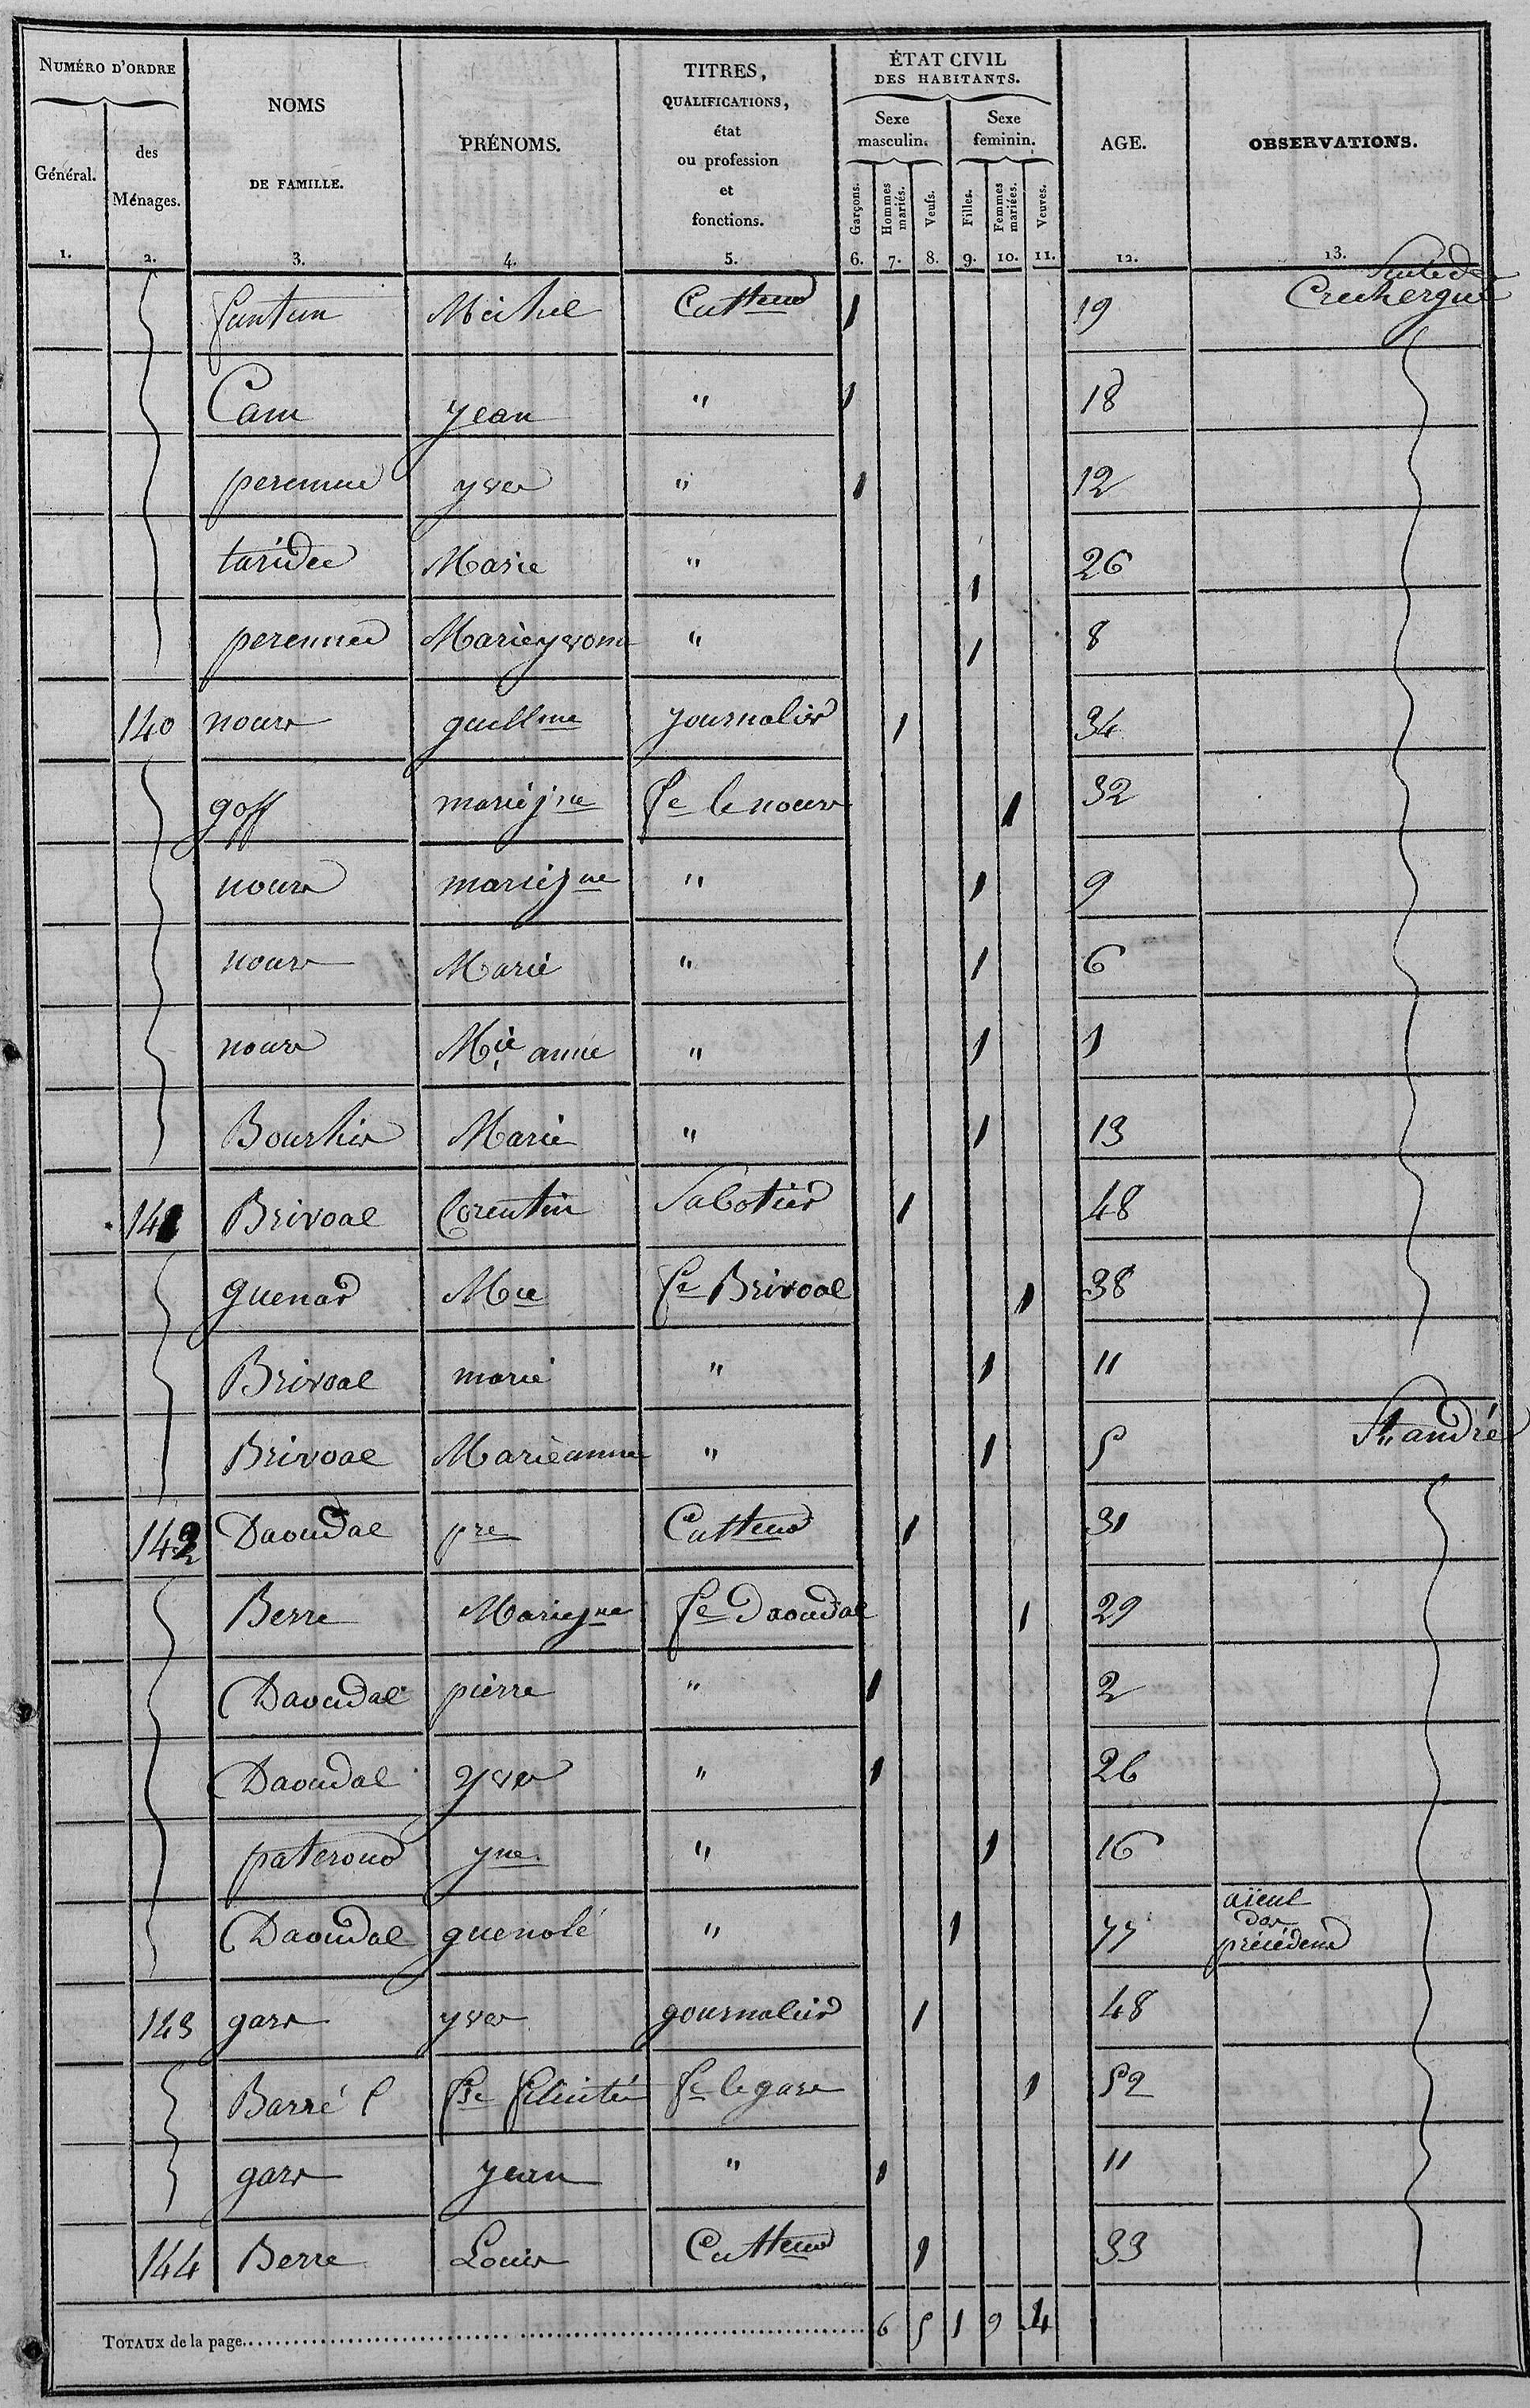 NUMÉRO D'ORDRE
Général.
des Ménages.
NOMS DE FAMILLE.
PRÉNOMS.
TITRES, QUALIFICATIONS, état ou profession et fonctions.
ÉTAT CIVIL DES HABITANTS.
Sexe masculin.
Sexe feminin.
Garçons.
Hommes mariés.
Veufs.
Filles.
Femmes mariées.
Veuves.
AGE.
OBSERVATIONS.
1. 2. 3. 4. 5. 6. 7. 8. 9. 10. 11. 12. 13.
Suite de
Michel Cultteur 1 19
Cam yean " 1 18
perennec yves " 1 12
taridec Marie " 1 26
perennec Marie yvonne " 1 8
140 nours guillme journalier 1 34
goff marie jne fe le nours 1 32
nours marie jne " 1 9
nours Marie " 1 6
nours Mie anne " 1 1
Bourhis Marie " 1 13
141 Brivoal Corentin Sabotier 1 48
guenar Mie fe Brivoal 1 38
Brivoal marie " 1 11
Brivoal Marie anne " 1 5 St andré
142 Daoudal pre Cultteur 1 31
Berre Marie jne fe Daoudal 1 29
Daoudal pierre " 1 2
Daoudal yves " 1 26
paterour yne " 1 16
Daoudal guenolé " 1 77 aïeul des précédens
143 gars yves journalier 1 48
Barré fse félicité fe le gars 1 52
gars yean " 1 11
144 Berre Louis Cultteur 1 33
TOTAUX de la page 6 5 1 9 4